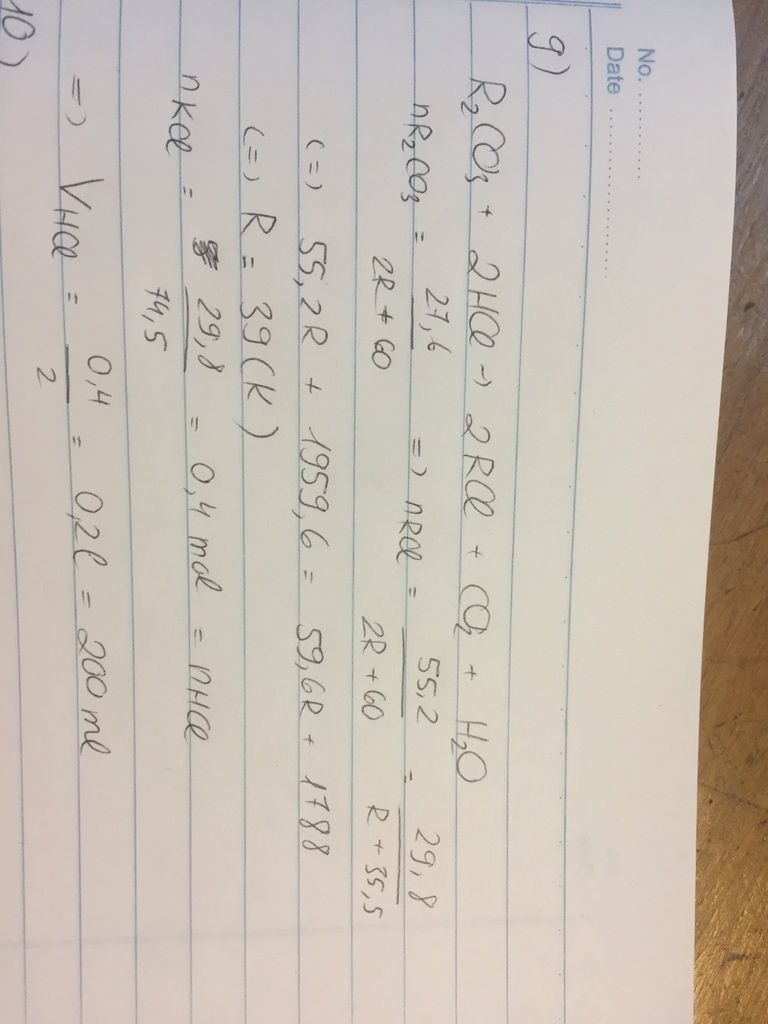 No. ............
Date ........................
9)
R₂CO₃ + 2HCl → 2RCl + CO₂ + H₂O
nR₂CO₃ = 27,6 / 2R + 60 => nRCl = 55,2 / 2R + 60 = 29,8 / R + 35,5
(=) 55,2R + 1959,6 = 59,6R + 1788
(=) R = 39 (K)
nKCl = 29,8 / 74,5 = 0,4 mol = nHCl
=> VHCl = 0,4 / 2 = 0,2l = 200 ml
10)